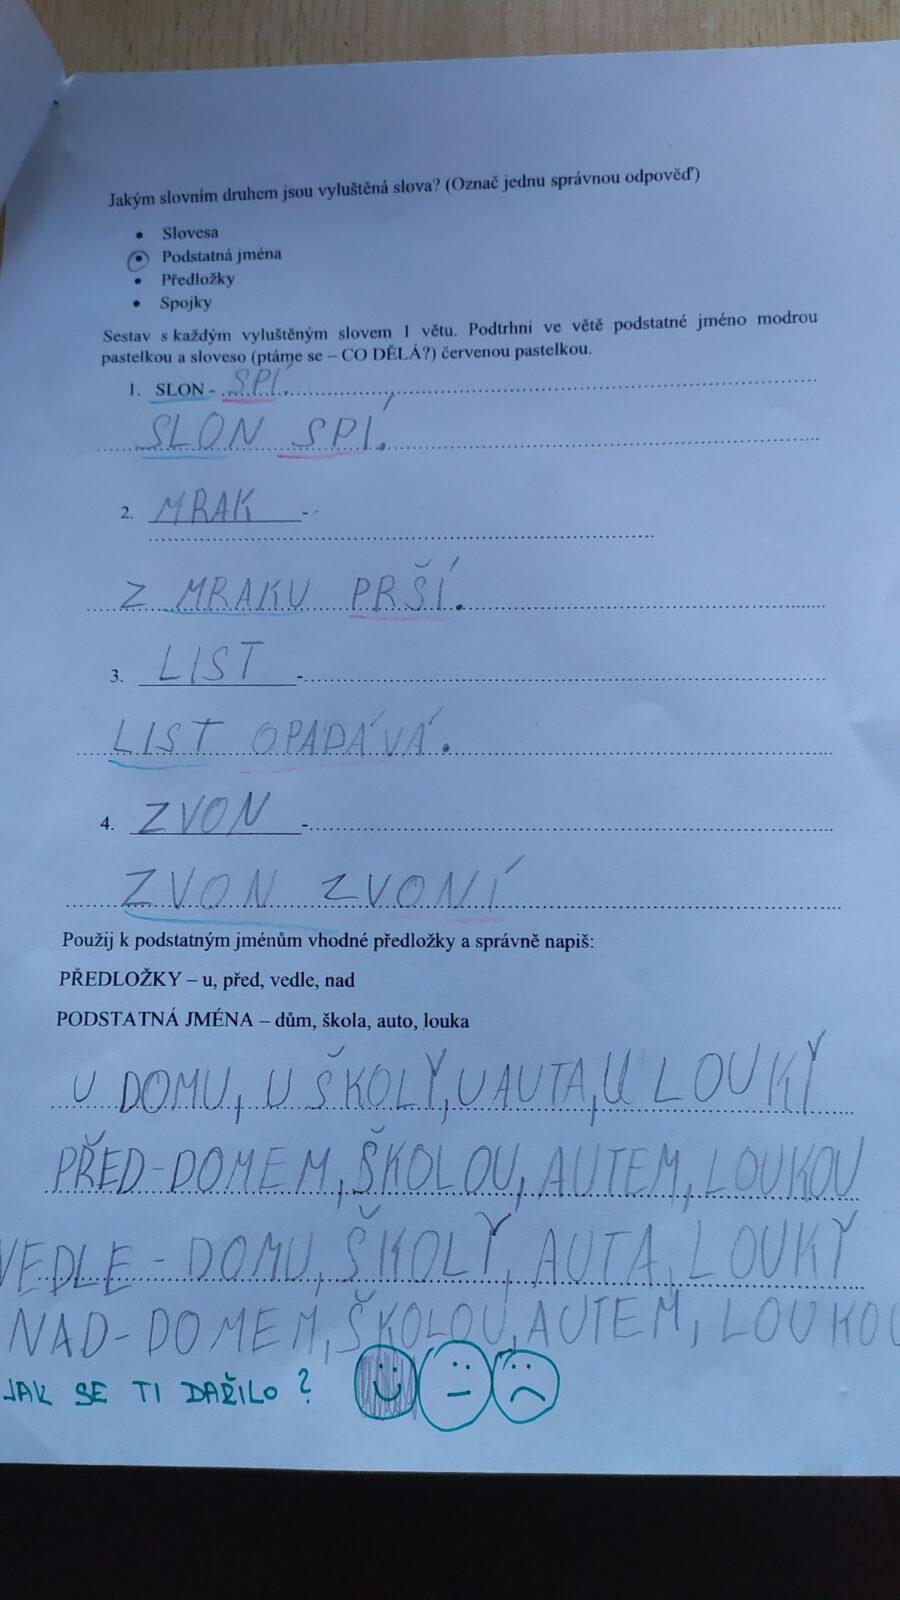 Jakým slovním druhem jsou vyluštěná slova? (Označ jednu správnou odpověď)
• Slovesa
• Podstatná jména
• Předložky
• Spojky
Sestav s každým vyluštěným slovem 1 větu. Podtrhni ve větě podstatné jméno modrou
pastelkou a sloveso (ptáme se – CO DĚLÁ?) červenou pastelkou.
1. SLON - SPÍ.
SLON SPÍ.
2. MRAK -
Z MRAKU PRŠÍ.
3. LIST -
LIST OPADÁVÁ.
4. ZVON -
ZVON ZVONÍ
Použij k podstatným jménům vhodné předložky a správně napiš:
PŘEDLOŽKY – u, před, vedle, nad
PODSTATNÁ JMÉNA – dům, škola, auto, louka
U DOMU, U ŠKOLY, U AUTA, U LOUKY
PŘED-DOMEM, ŠKOLOU, AUTEM, LOUKOU
VEDLE - DOMU, ŠKOLY, AUTA, LOUKY
NAD-DOMEM, ŠKOLOU, AUTEM, LOUKOU
JAK SE TI DAŘILO?